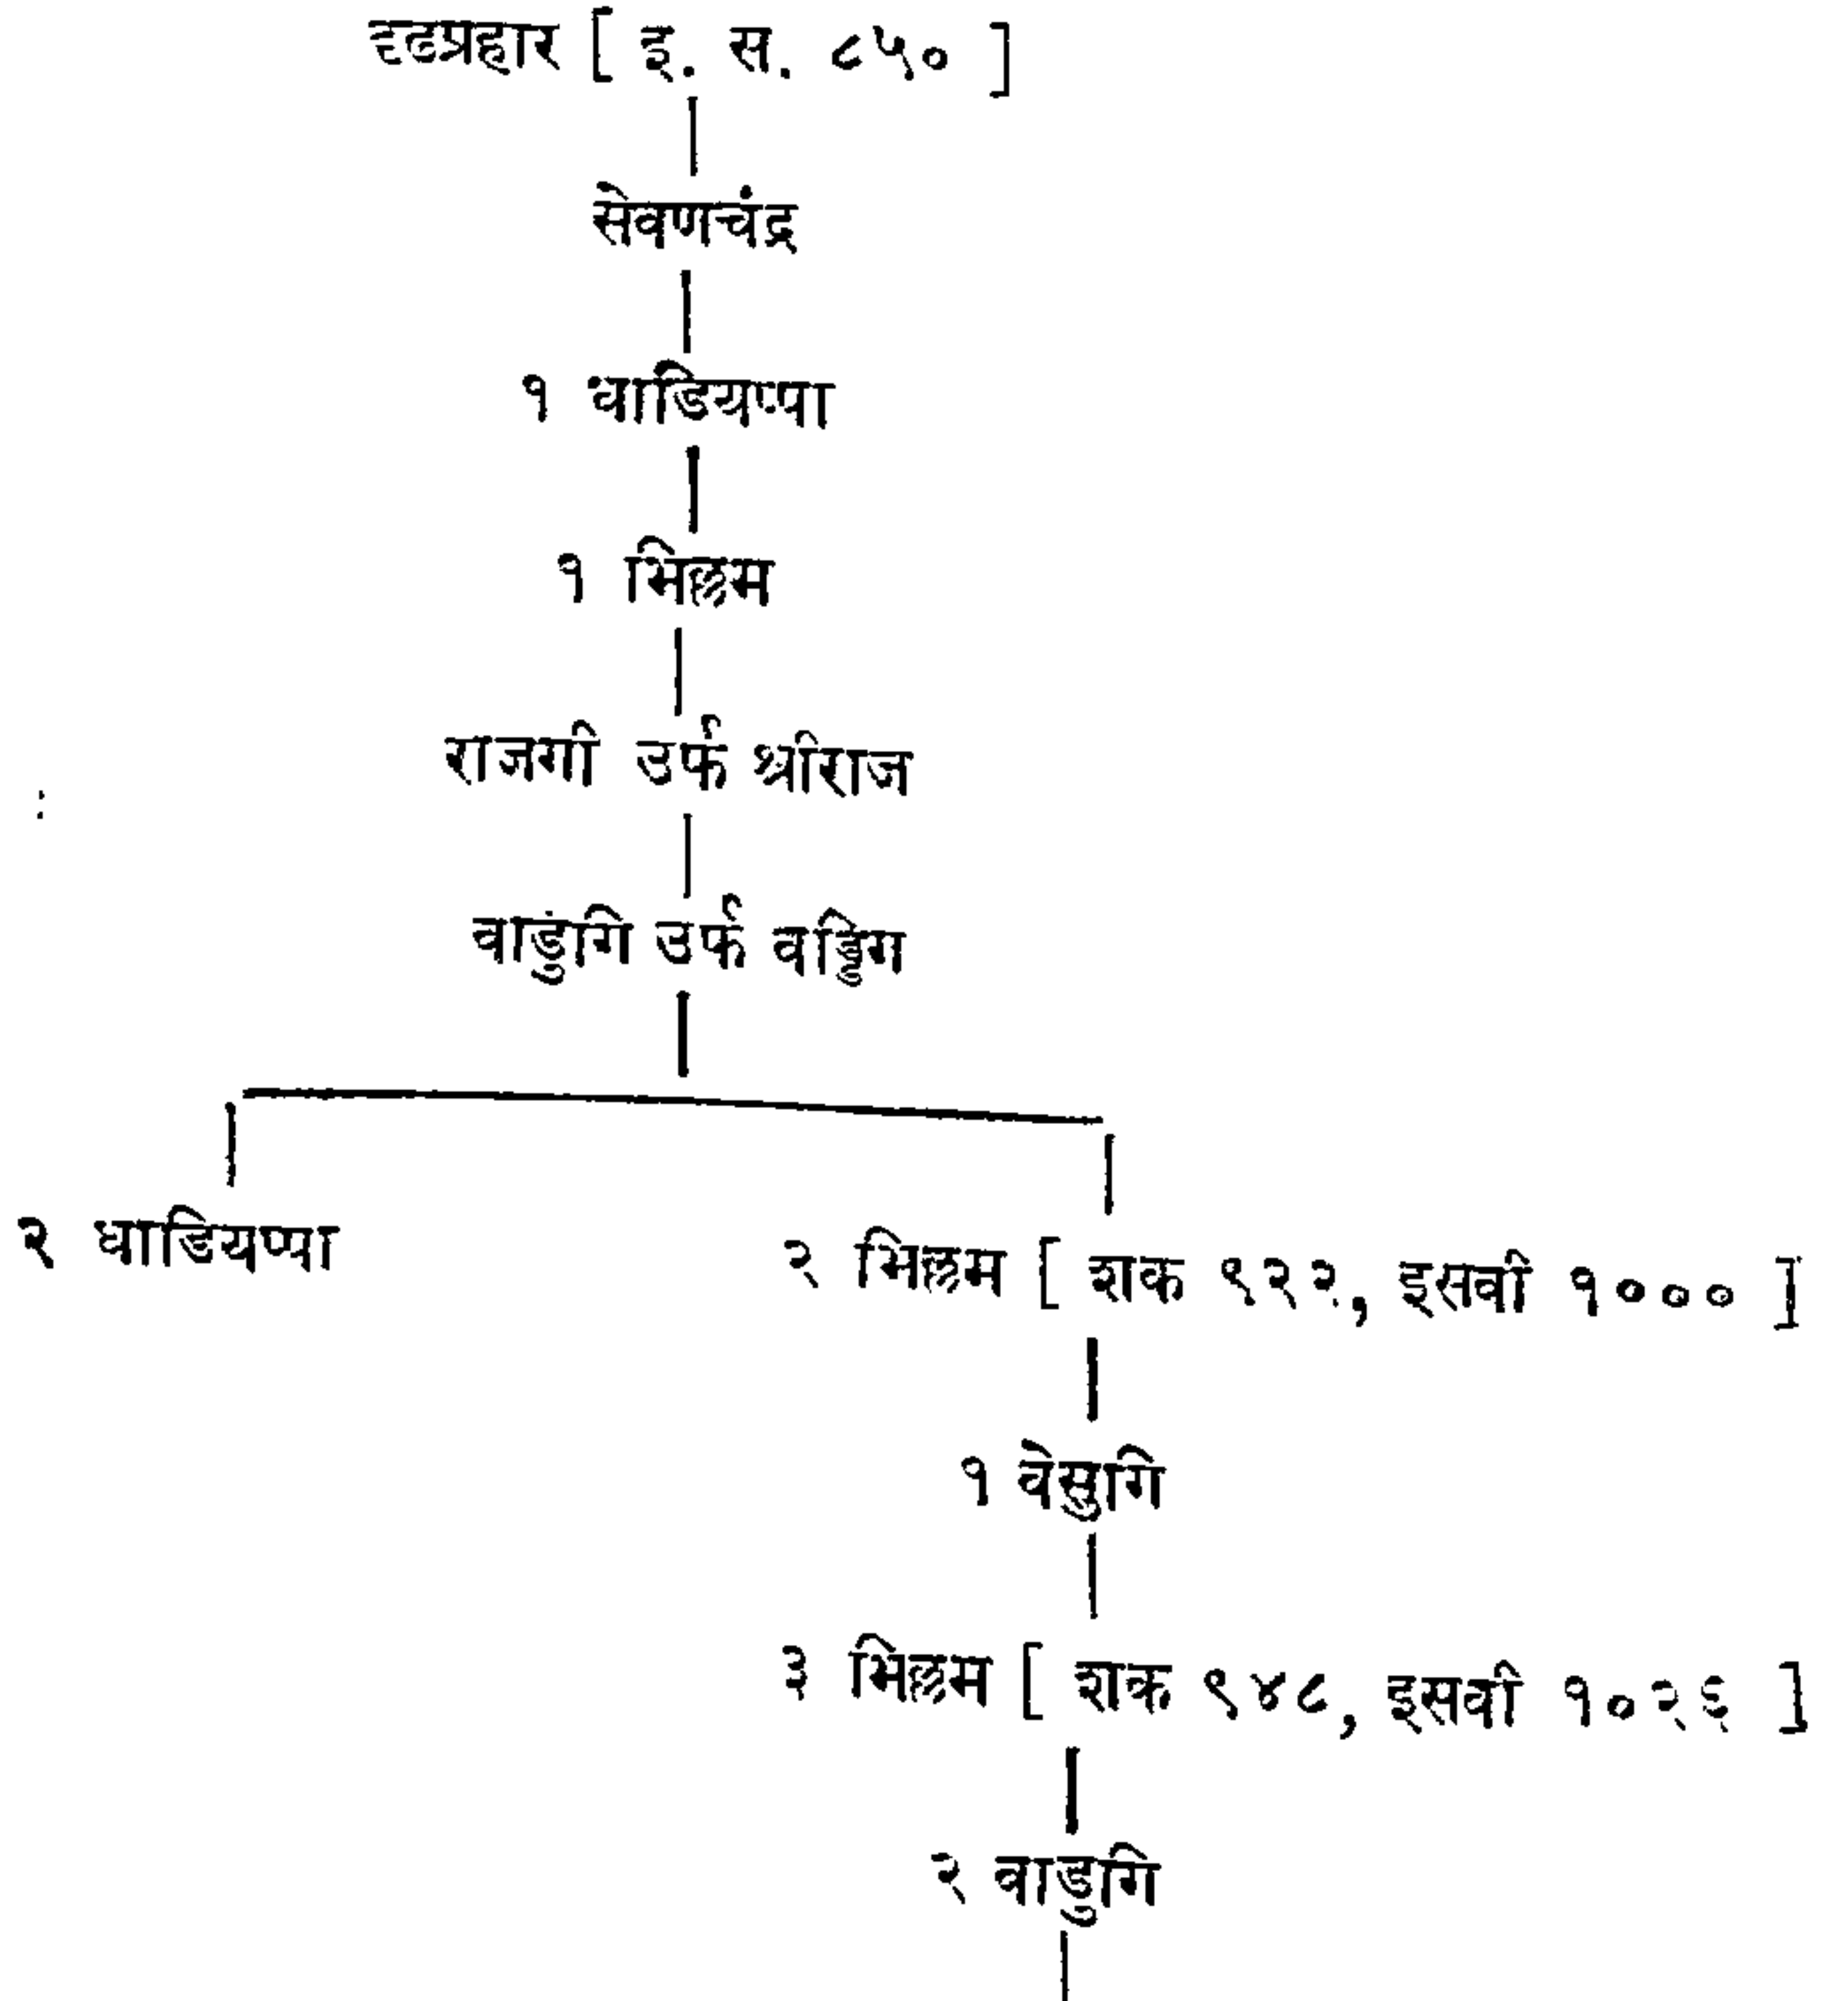 दृढप्रहार [ इ. स. ८५० ]
सेवणचंद्र
१ धाडियप्पा
१ भिल्लम
राजगी उर्फ श्रीराज
वाडुंगि उर्फ वड्डिग
२ धाडियप्पा
२ भिल्लम [ शक ९२२, इसवी १००० ]
१ वेसुगि
३ भिल्लम [ शक ९४८, इसवी १०२६ ]
२ वाडुगि